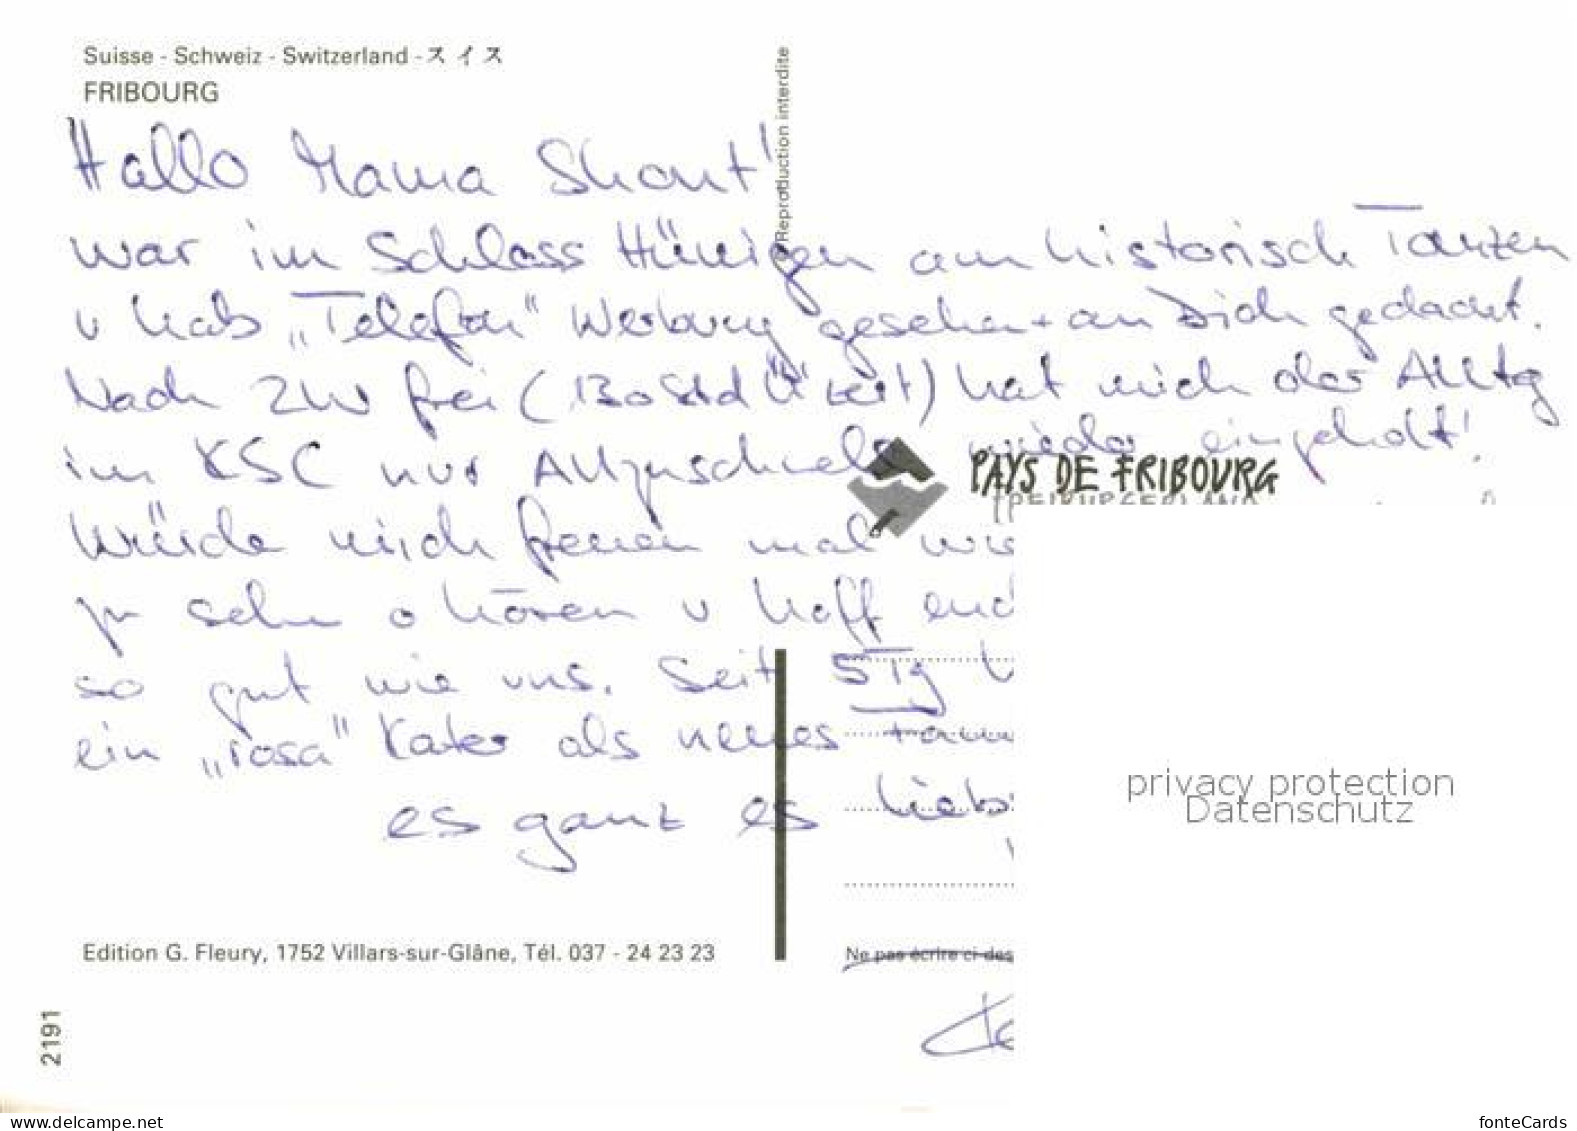 Suisse - Schweiz - Switzerland - スイス
FRIBOURG
Reproduction interdite
Hallo Mama Shout!
war im Schloss Hünigen am historisch Tanzen
u hab „Telefon" Werbung gesehen + an Dich gedacht.
Nach 2W frei (130 Std Ü'zeit) hat mich der Alltg
im KSC nur Allzuschnell wieder eingeholt!
PAYS DE FRIBOURG
FREIBURGERLAND
Würde mich freuen mal wie
zu sehn o hören u hoff euch
so gut wie uns. Seit 5Tg
ein „rosa" Kater als neues Fam
es ganz es liebs
Edition G. Fleury, 1752 Villars-sur-Glâne, Tél. 037 - 24 23 23
Ne pas écrire ci-des
2191
privacy protection
Datenschutz
www.delcampe.net
fonteCards